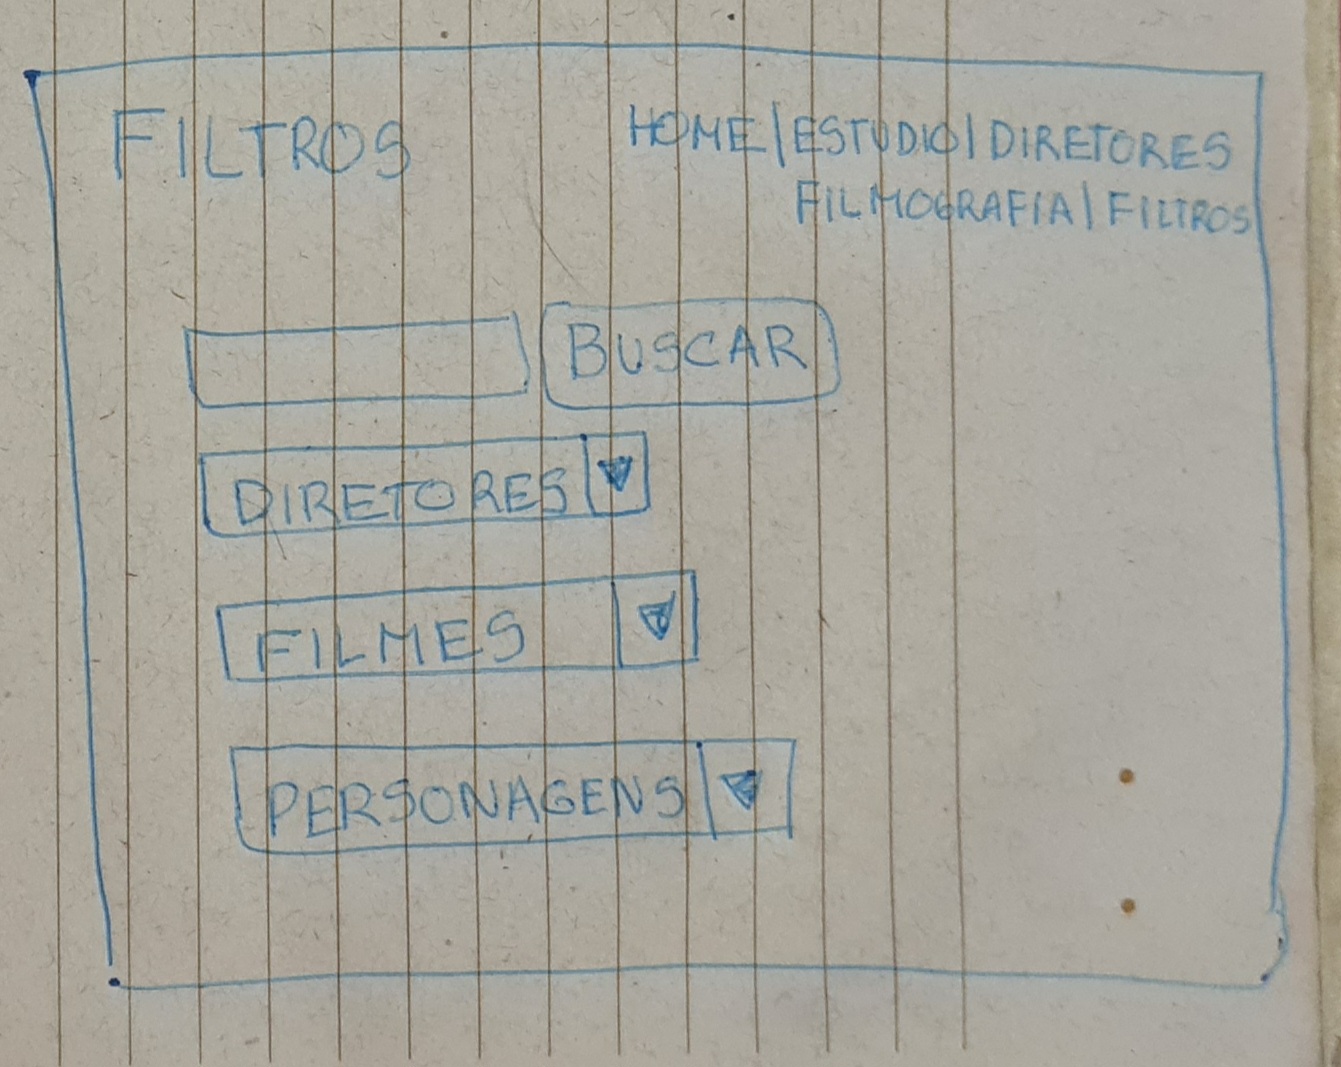 FILTROS
HOME|ESTUDIO|DIRETORES
FILMOGRAFIA|FILTROS
BUSCAR
DIRETORES
FILMES
PERSONAGENS